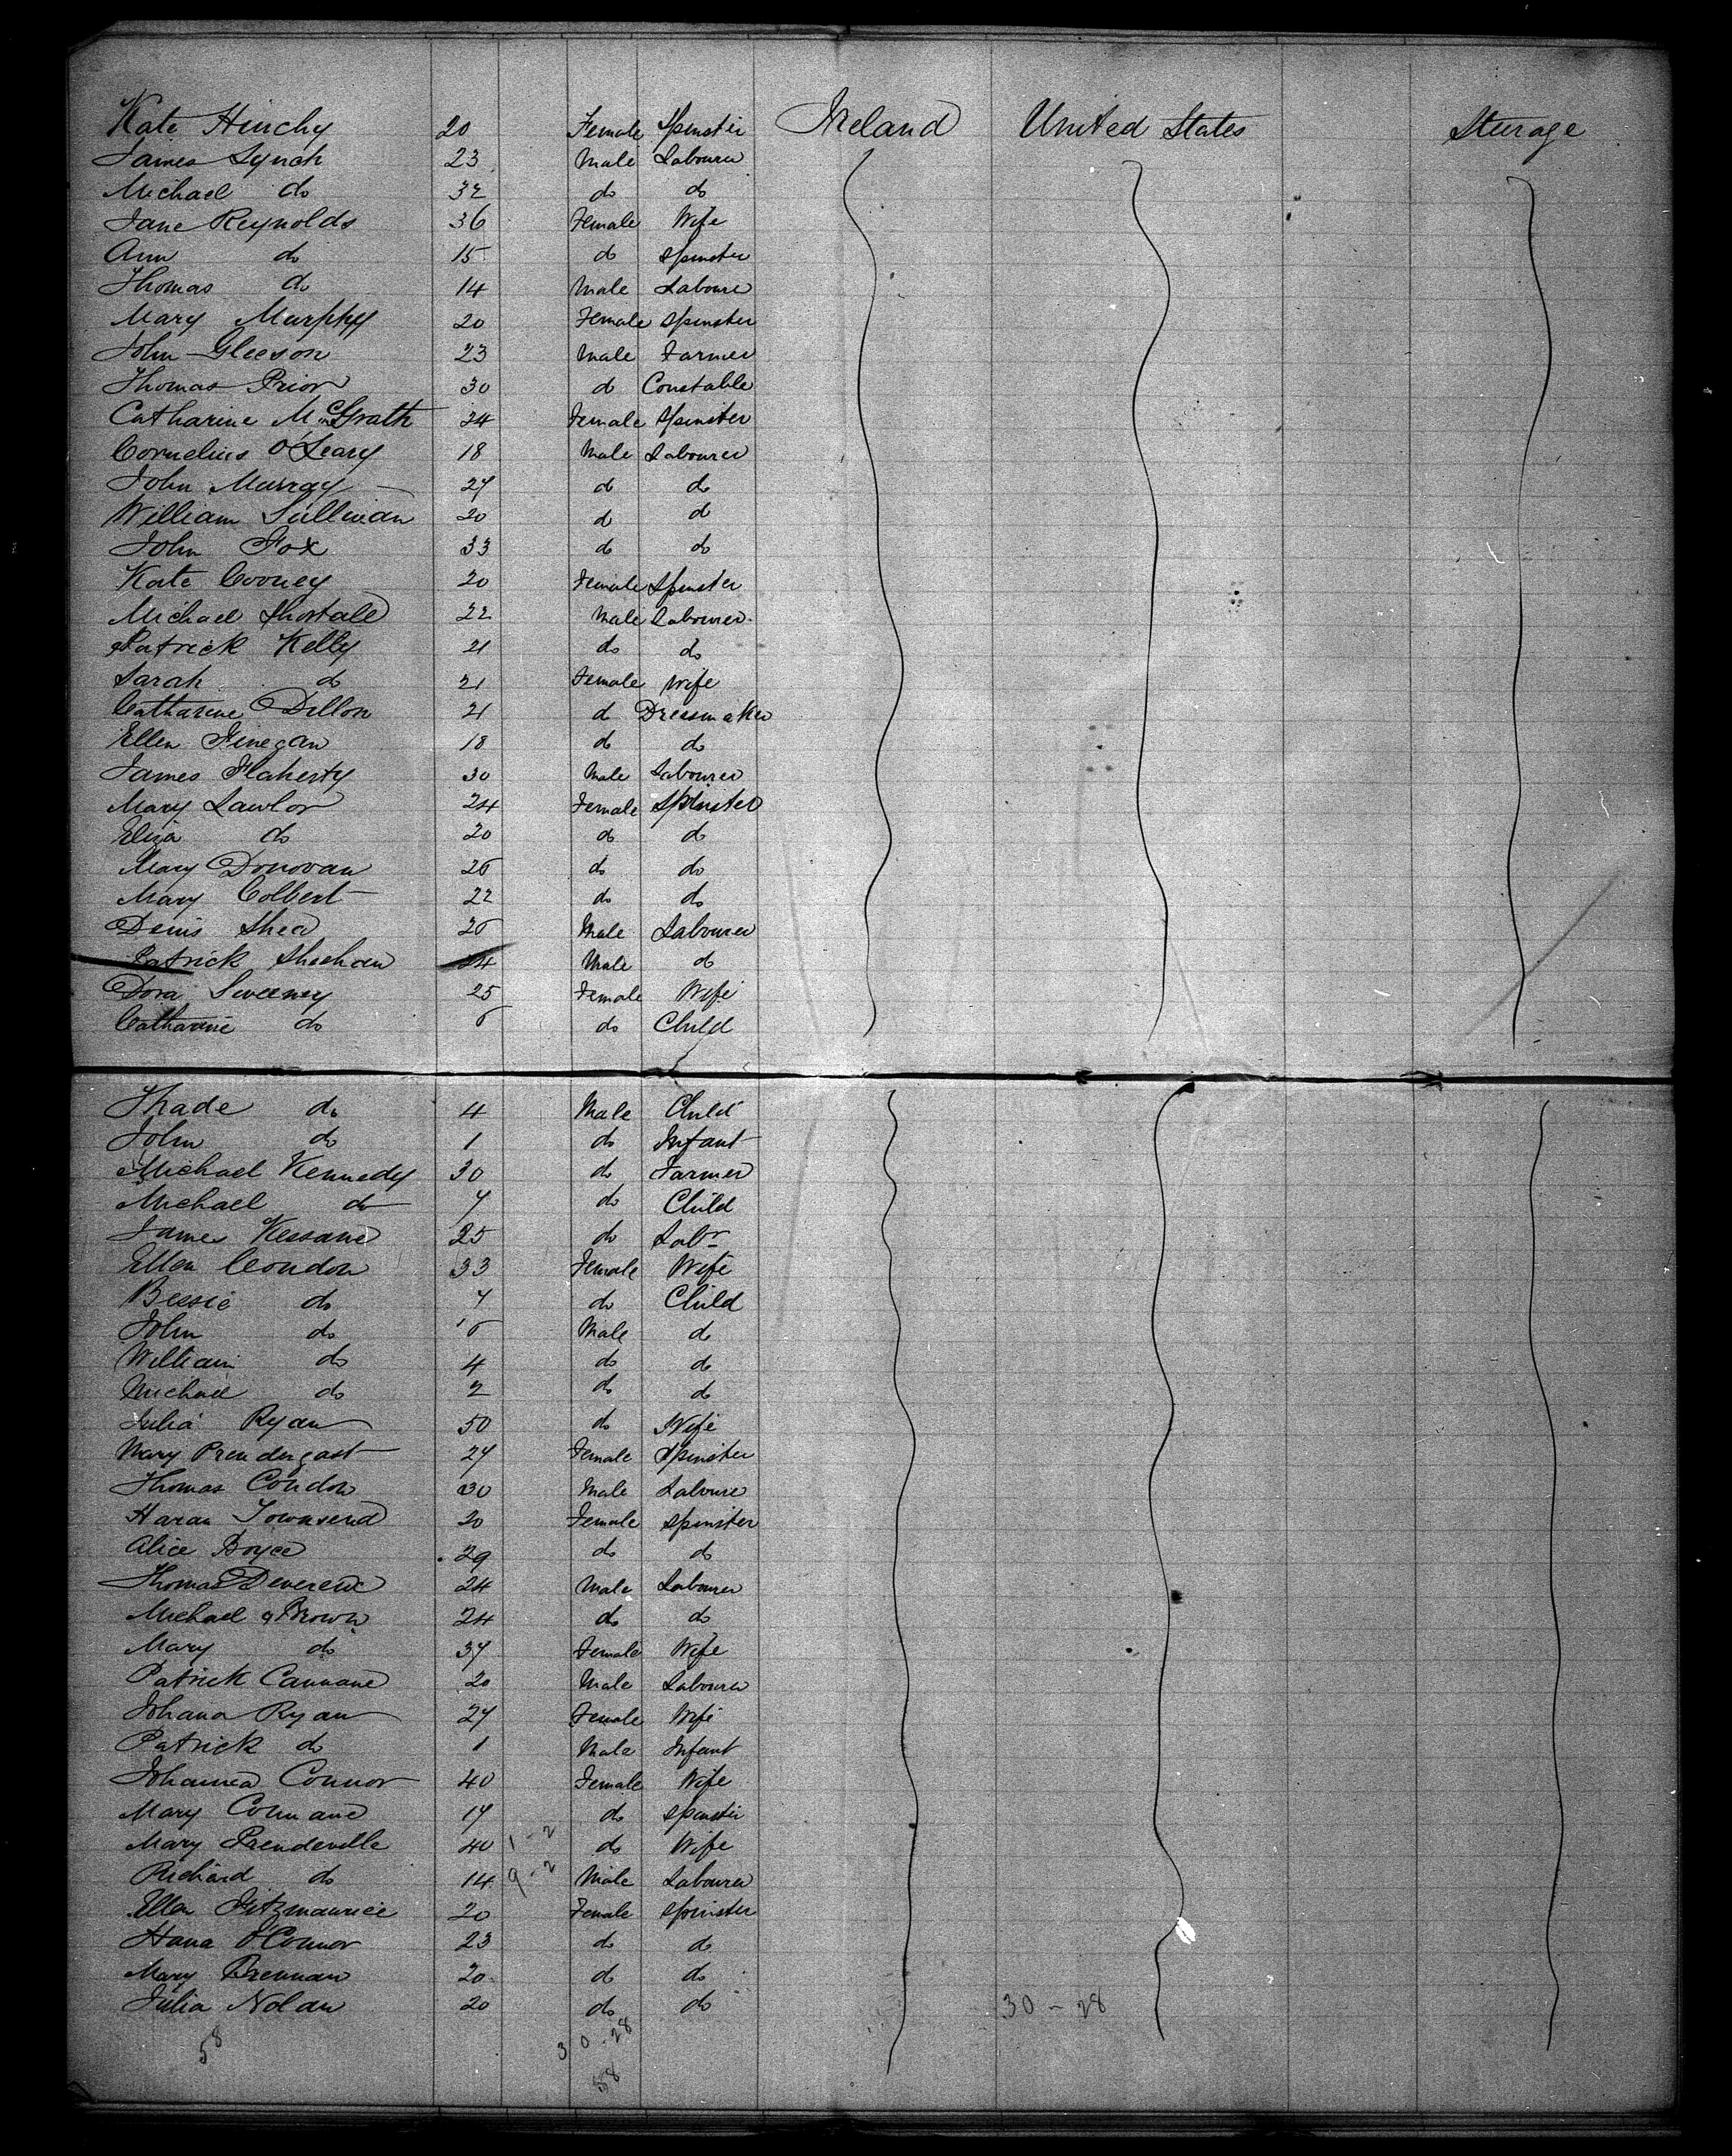 Kate Hinchy 20 Female Spinster Ireland United States Steerage
James Lynch 23 Male Labourer
Michael do 32 do do
Jane Reynolds 36 Female Wife
Ann do 15 do Spinster
Thomas do 14 Male Laboure
Mary Murphy 20 Female Spinster
John Gleeson 23 Male Farmer
Thomas Prior 30 do Constable
Catharine McGrath 24 Female Spinster
Cornelius O'Leary 18 Male Labourer
John Murray 27 do do
William Sullivan 20 do do
John Fox 33 do do
Kate Cooney 20 Female Spinster
Michael Shortall 22 Male Labourer
Patrick Kelly 21 do do
Sarah do 21 Female Wife
Catharine Dillon 21 do Dressmaker
Ellen Finegan 18 do do
James Flaherty 30 Male Labourer
Mary Lawlor 24 Female Spinster
Eliza do 20 do do
Mary Donovan 25 do do
Mary Colbert 22 do do
Denis Shea 25 Male Labourer
Patrick Sheehan 24 Male do
Dora Sweeney 25 Female Wife
Catharine do 5 do Child
Thade do 4 Male Child
John do 1 do Infant
Michael Kennedy 30 do Farmer
Michael do 7 do Child
James Kissane 25 do Labr
Ellen Condon 33 Female Wife
Bessie do 7 do Child
John do 5 Male do
William do 4 do do
Michael do 2 do do
Julia Ryan 50 do Wife
Mary Prendergast 27 Female Spinster
Thomas Condon 30 Male Laboure
Townsend 20 Female Spinster
Alice Boyce 29 do do
Thomas Devereux 24 Male Labourer
Michael Brown 24 do do
Mary do 37 Female Wife
Patrick Cannane 20 Male Labourer
Johana Ryan 27 Female Wife
Patrick do 1 Male Infant
Johanna Connor 40 Female Wife
Mary 17 do Spinster
Mary Prendeville 40 1-2 do Wife
Richard do 14 9-2 Male Labourer
Ellen Fitzmaurice 20 Female Spinster
Hana O'Connor 23 do do
Mary Brennan 20 do do
Julia Nolan 20 do do 30-28
58 30-28
58